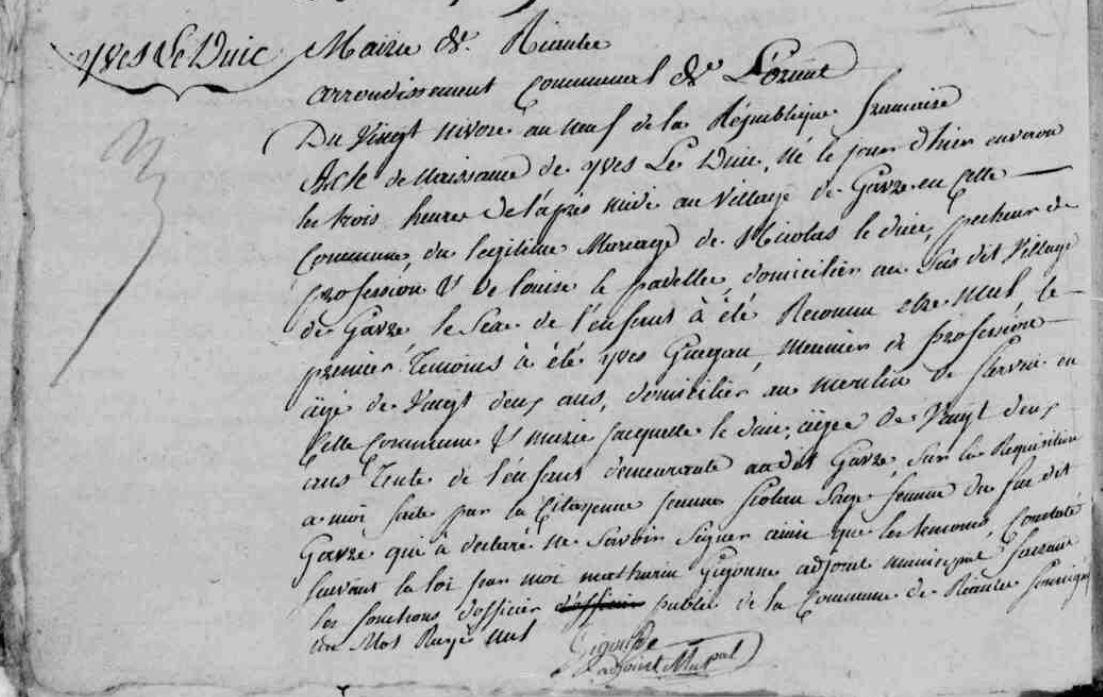 yves Le Duic
Mairie de Riantec
arrondissement Communal de L'orient
Du Vingt nivose an neuf de la République francaise
Acte de naissance de yves Le Duic, né le jour d'hier environ
les trois heures de l'après midi au Village de Gavre en cette
Commune, du legitime Mariage de Nicolas le duic, pecheur de
profession & de louise le padellec, domicilier au sus dit Village
de Gavre le Sexe de l'enfant à été Reconnu etre Mal, le
premier Temoins à été yves Guegan, meunier de profession
agé de Vingt deux ans, domicilier au moulin de en
Cette Commune & marie jacquette le duic, agée de Vingt deux
ans Tente de l'enfant demeurante audit Gavre, Sur la Requisition
a moi faite par la Citoyenne jeanne Sage femme du sus dit
Gavre qui à declaré ne Savoir Signer ainsi que les temoins, Constaté
suivant la loi par moi mathurin Gigonne adjoint municipal faisant
les fonctions d'officier d'officier public de la Commune de Riantec Soussigné
un Mot Rayé nul
adjoint Mupal